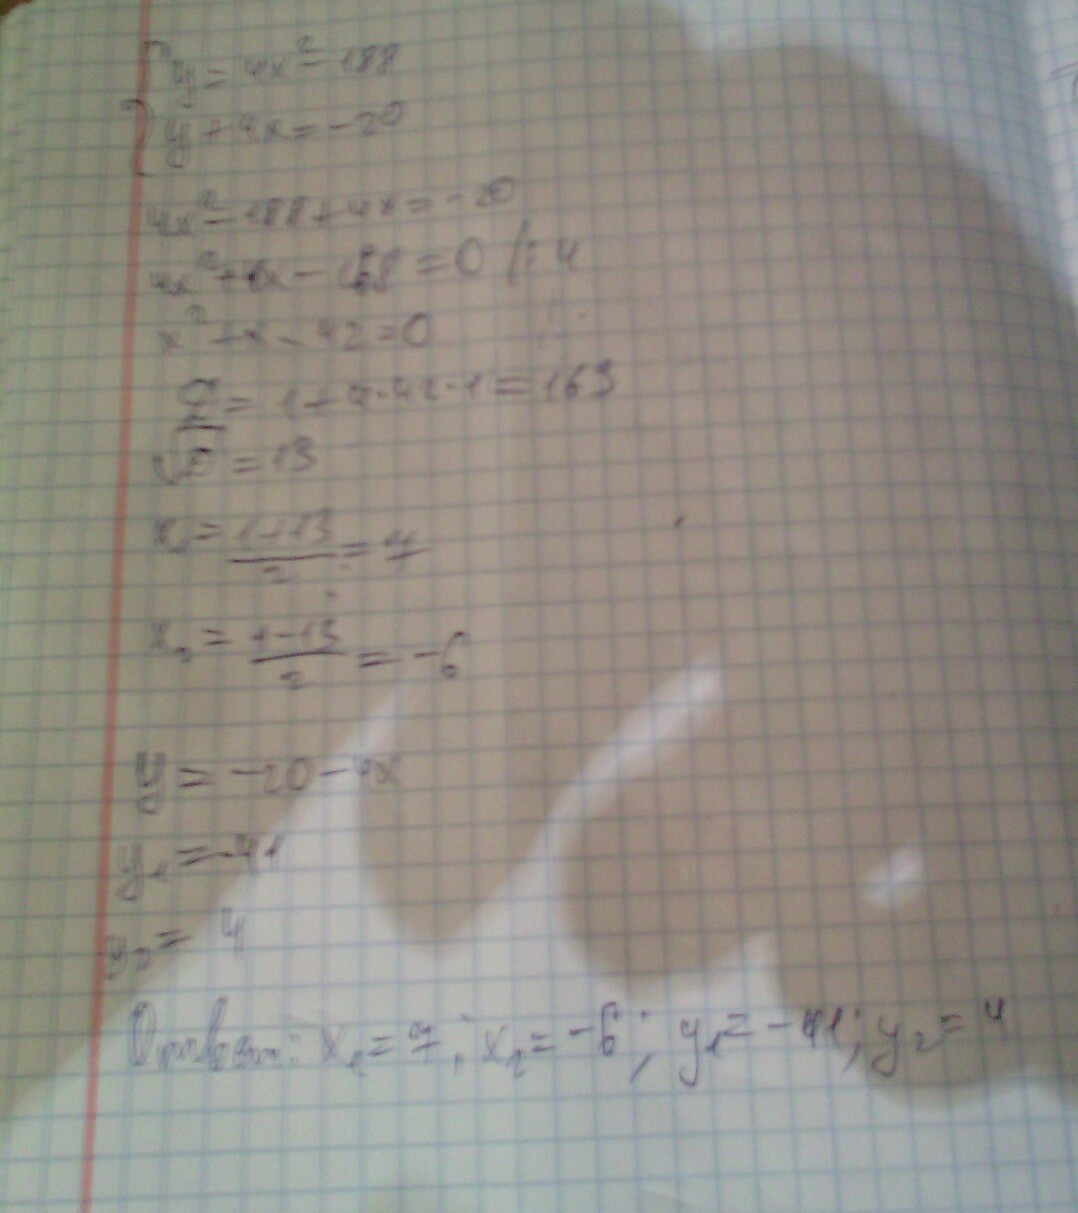 y = 4x² - 188
y + 4x = -20
4x² - 188 + 4x = -20
4x² + 4x - 168 = 0 /: 4
x² + x - 42 = 0
D = 1 + 4·42·1 = 169
√D = 13
x₁ = (1+13)/2 = 7
x₂ = (1-13)/2 = -6
y = -20 - 4x
y₁ = -41
y₂ = 4
x₁ = 7; x₂ = -6; y₁ = -41; y₂ = 4